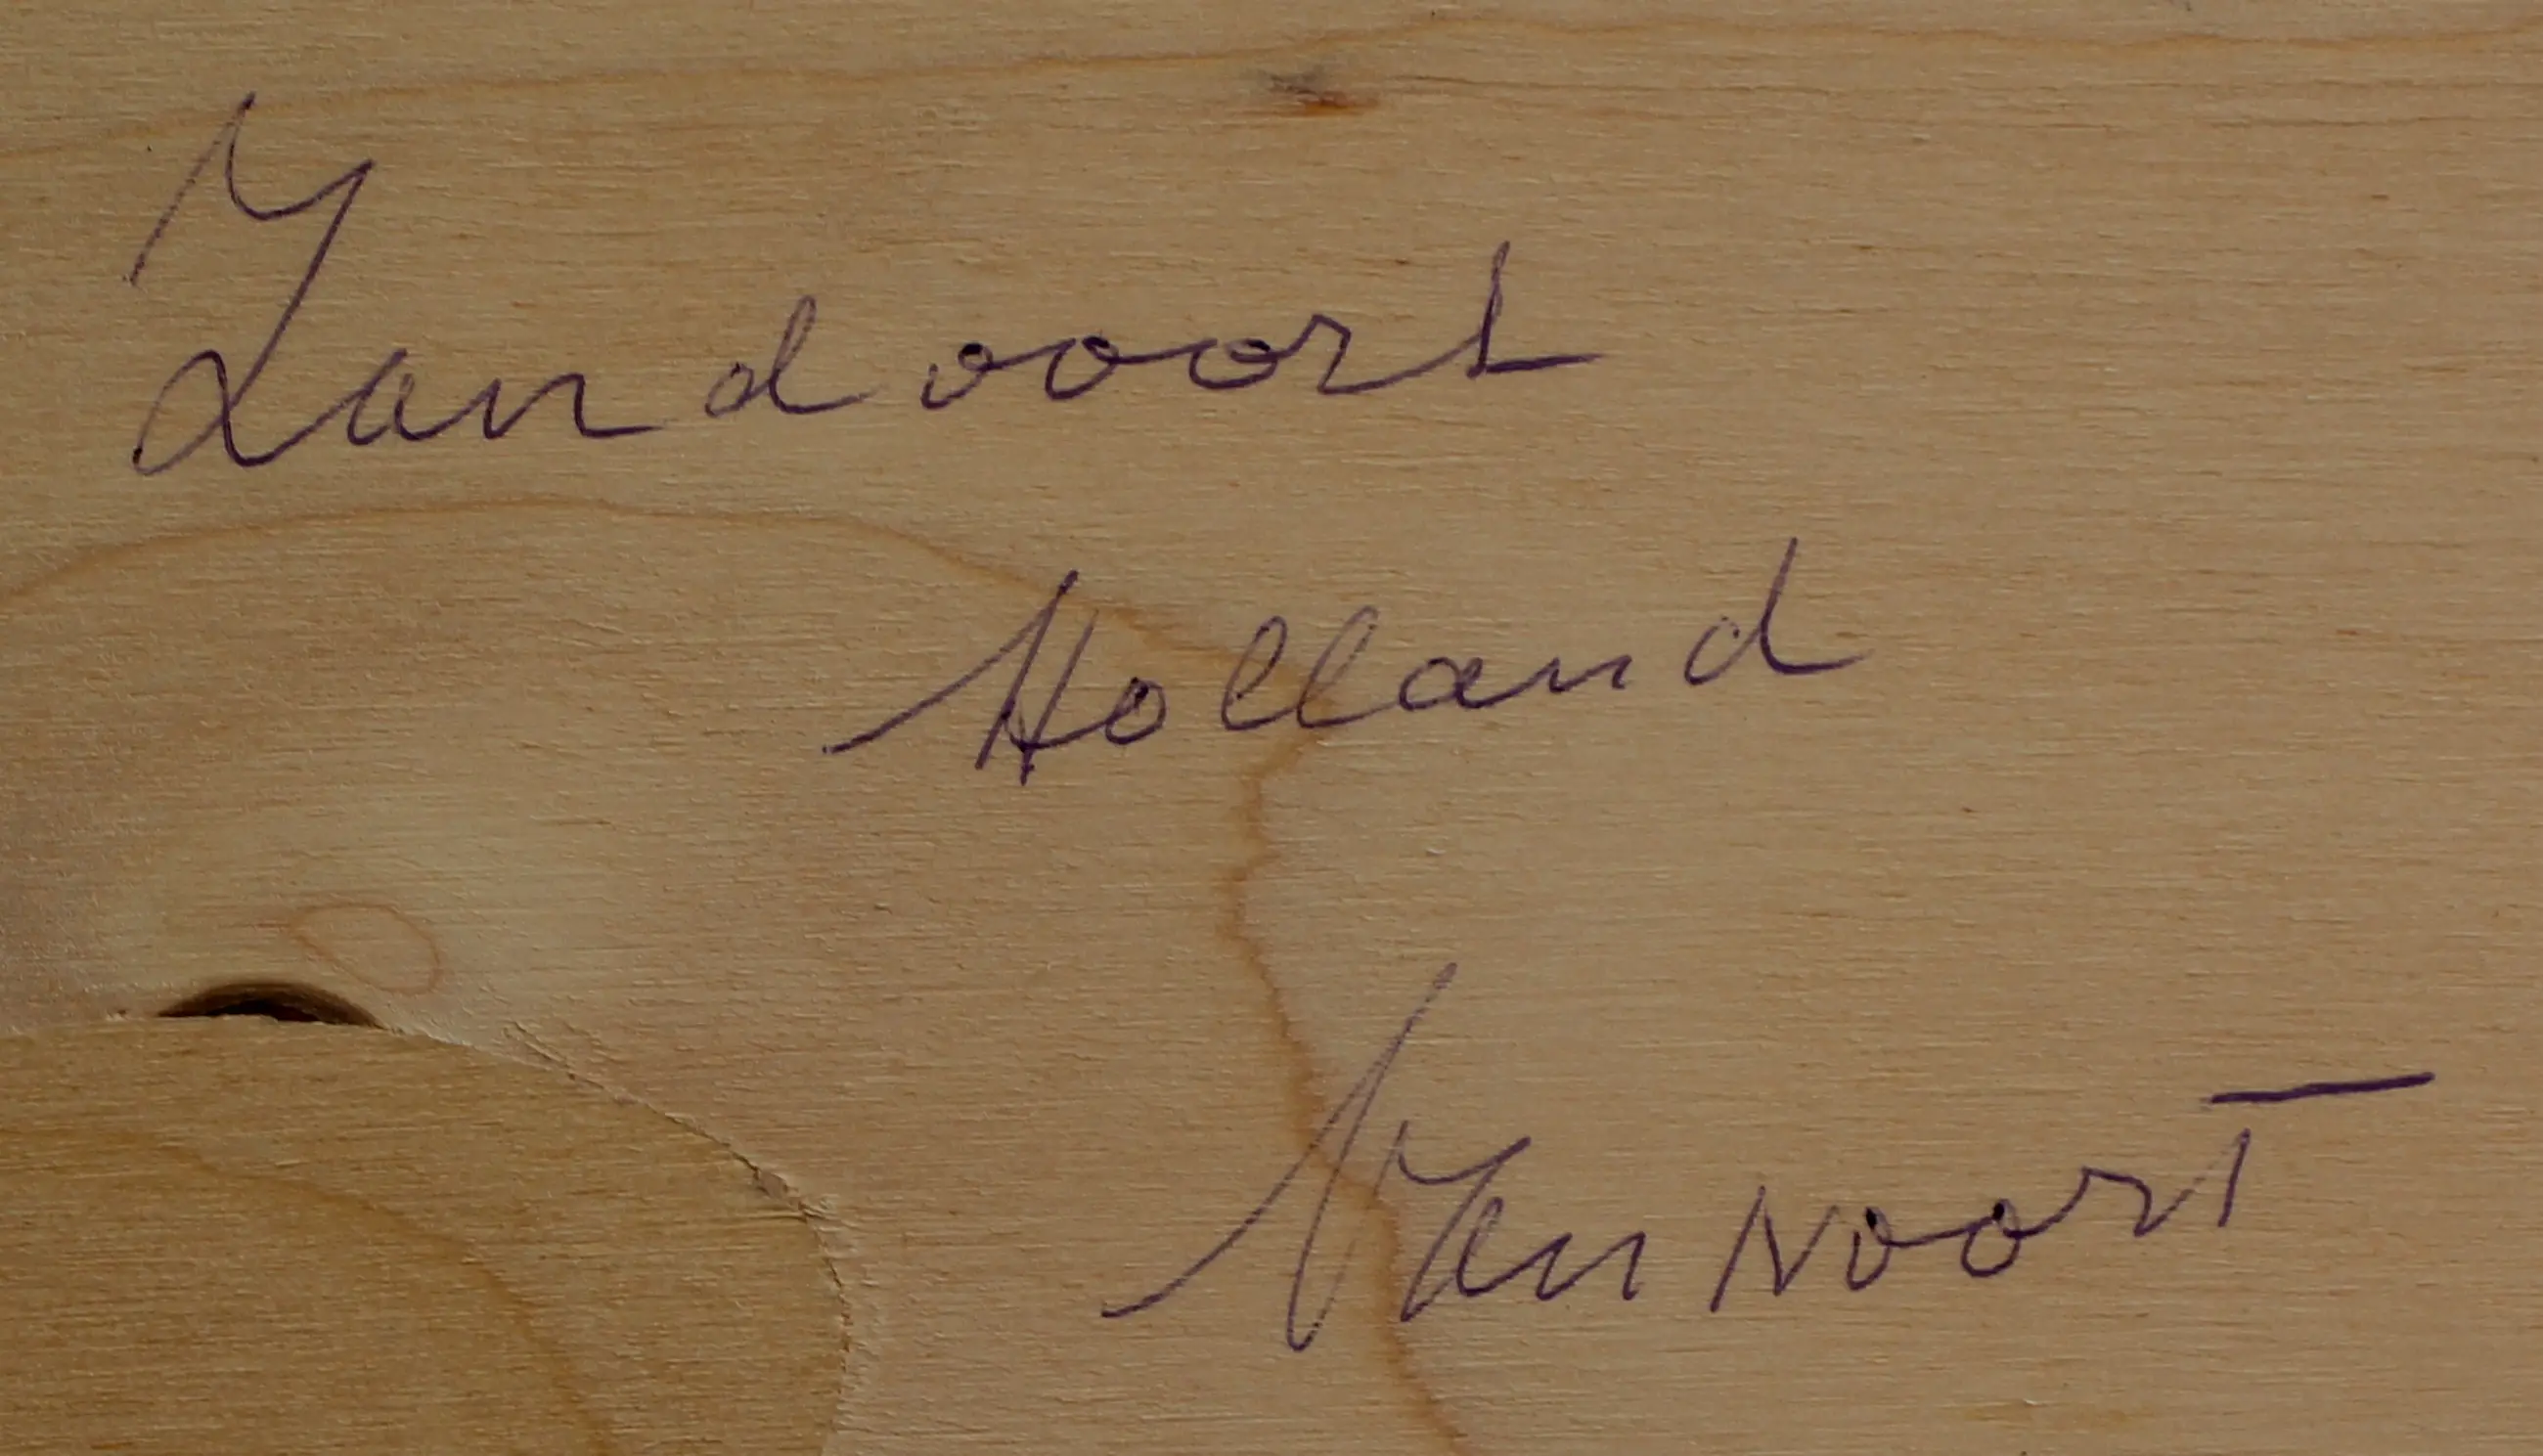 Zandvoort
Holland
Van Noort